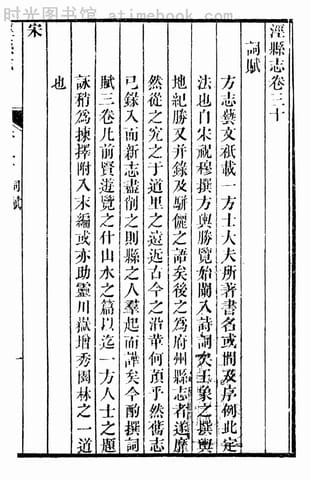 时光图书馆 - atimebook.com
涇縣志卷三十
詞賦
方志藝文祇載一方士大夫所著書名或間及序例此定
法也自宋祝穆撰方輿勝覽始闌入詩詞次王象之撰輿
地紀勝又并錄及駢儷之語矣後之為府州縣志者遂靡
然從之究之于道里之遠近古今之沿革何預乎然舊志
已錄入而新志盡削之則縣之人羣起而譁矣今酌撰詞
賦三卷凡前賢遊覽之什山水之篇以迄一方人士之題
詠稍為揀擇附入末編或亦助靈川嶽增秀園林之一道
也
宋
詞賦
一